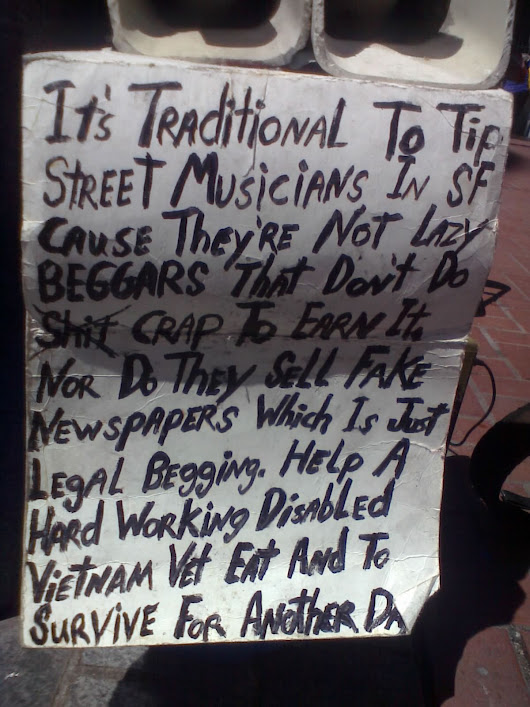 It's Traditional To Tip
Street Musicians In SF
Cause They're Not Lazy
Beggars That Don't Do
Shit Crap To Earn It.
Nor Do They Sell Fake
Newspapers Which Is Just
Legal Begging. Help A
Hard Working Disabled
Vietnam Vet Eat And To
Survive For Another Da